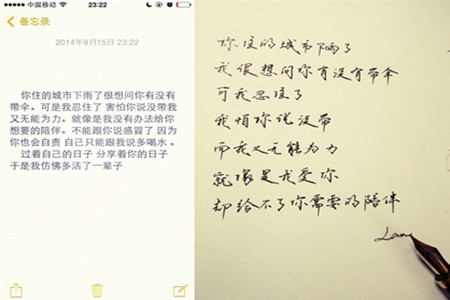 中国移动 23:22
备忘录
2014年9月15日 23:22
你住的城市下雨了很想问你有没有
带伞。可是我忍住了 害怕你说没带我
又无能为力。就像是我没有办法给你
想要的陪伴。不能跟你说感冒了 因为
你也会自责 自己只能跟我说多喝水 。
过着自己的日子 分享着你的日子
于是我仿佛多活了一辈子
你住的城市下雨了
我很想问你有没有带伞
可我忍住了
我怕你说没带
而我又无能为力
就像是我爱你
却给不了你需要的陪伴